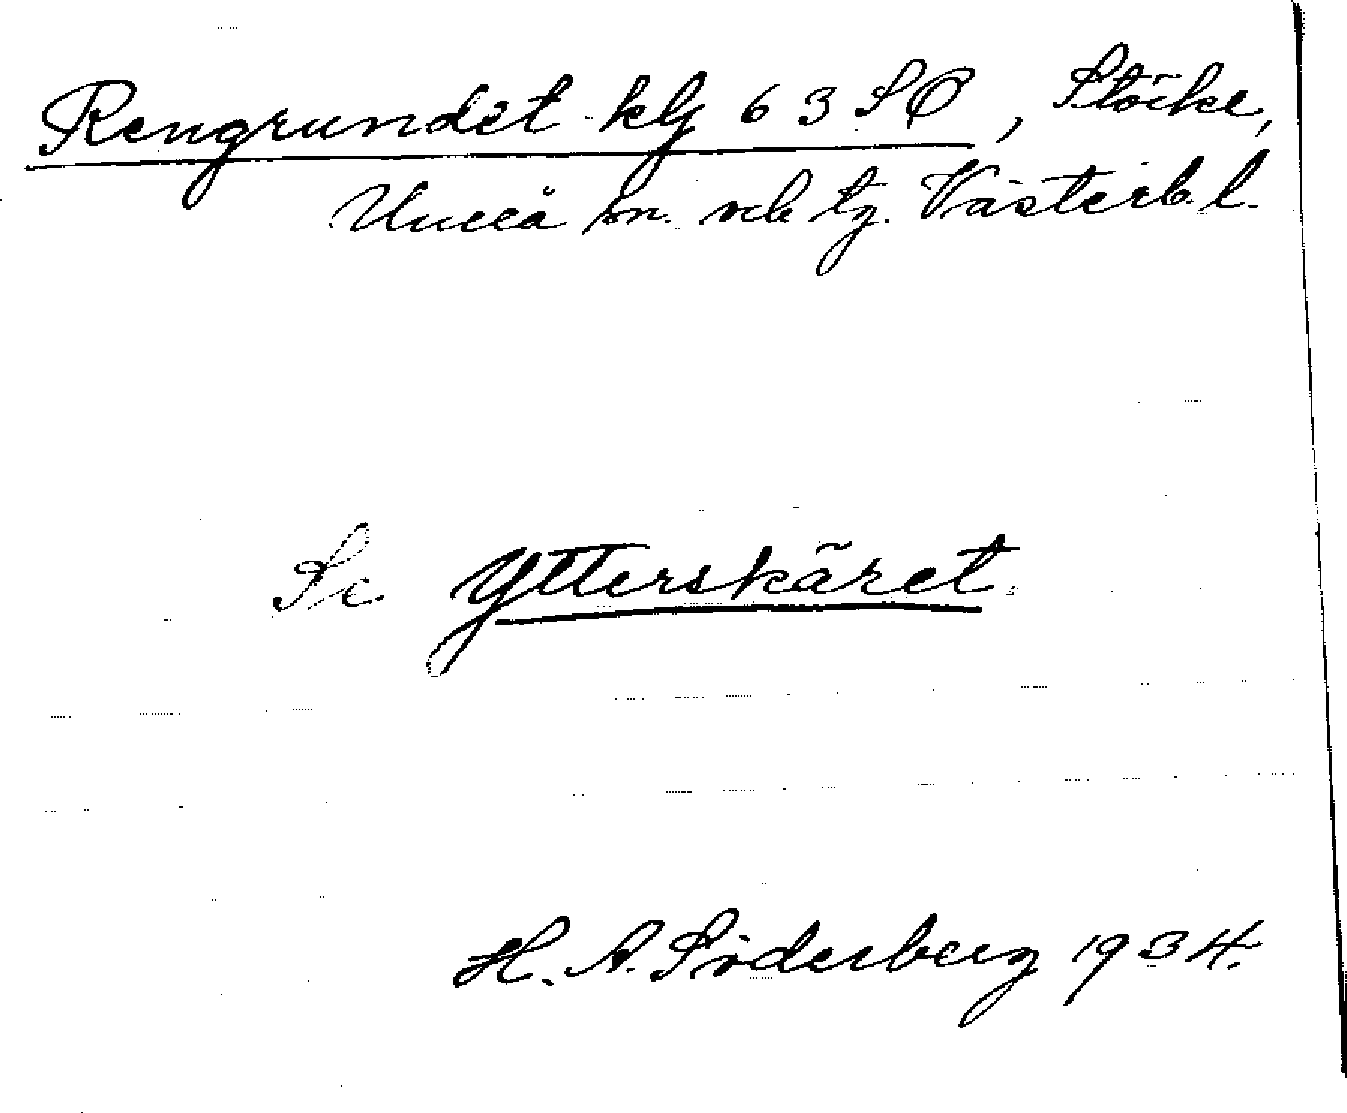 Rengrundet klg 63 SO, Stöcke,
Umeå sn. ock tg. Västerb. l.
Se Ytterskäret.
H. A. Söderberg 1934.